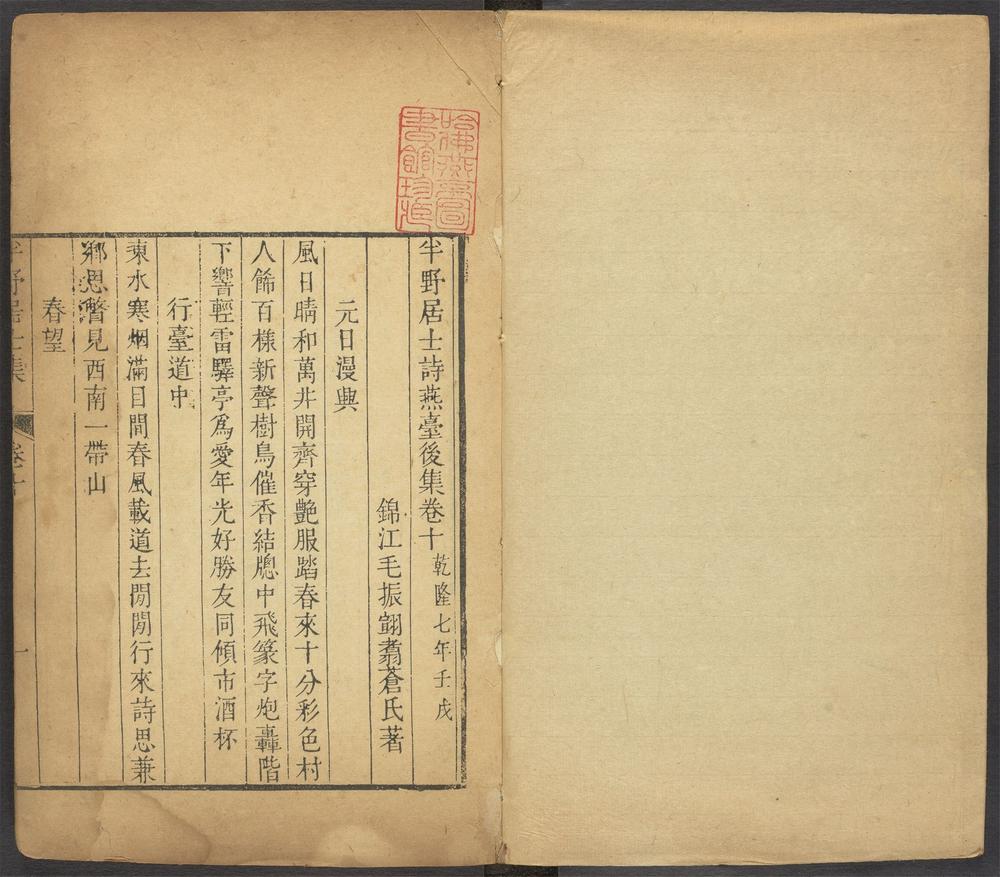 哈佛燕京圖
書館珍藏
半野居士詩燕臺後集卷十 乾隆七年壬戌
錦江毛振翧翥蒼氏著
元日漫興
風日晴和萬井開齊穿艷服踏春來十分彩色村
人餙百樣新聲樹鳥催香結牕中飛篆字炮轟階
下響輕雷驛亭爲愛年光好勝友同傾市酒杯
行臺道中
東水寒烟滿目間春風載道去閒閒行來詩思兼
鄉思瞥見西南一帶山
春望
半野居士集 卷十 一